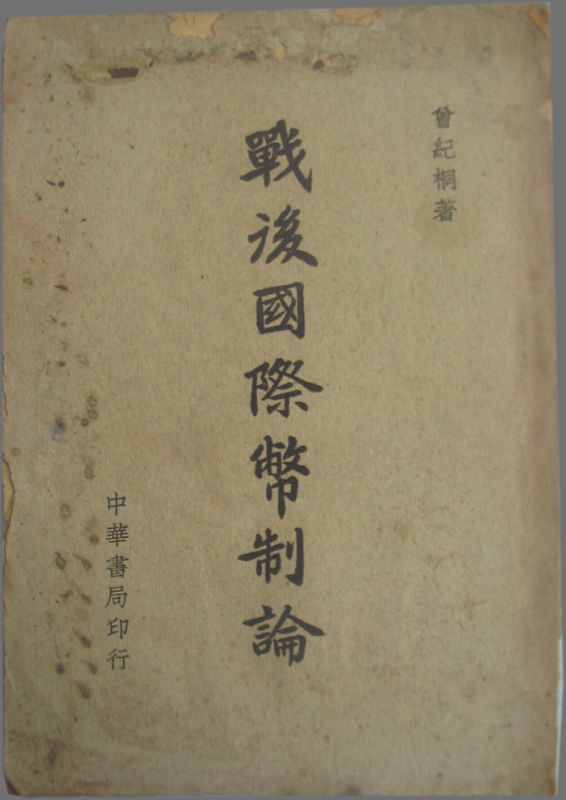 曾紀桐著
戰後國際幣制論
中華書局印行